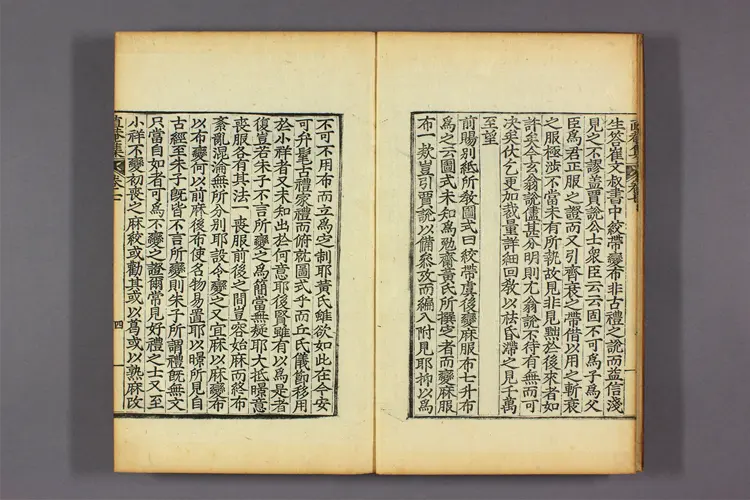 生答崔文叔書中絞帶變布非古禮之說而益信淺
見之不謬益賈說公士衆臣云云固不可爲子爲父
臣爲君正服之證而又引齊衰之帶借以用之斬衰
之服極涉不當未有所說故見非見黜於後來者如
許矣今玄翁說儘甚分明則尤翁說不待有無而可
決矣伏乞更加裁量詳細回敎以祛昏滯之見千萬
至望
前賜別紙所敎圖式曰絞帶虞後變麻服布七升布
爲之云圖式未知爲勉齋黃氏所撰定者而變麻服
布一款豈引賈說以備參攷而編入附見耶抑以爲
不可不用布而立爲定制耶黃氏雖欲如此在今安
可弁髦古禮家禮而俯就圖式乎而丘氏儀節移用
於小祥者又未知出於何意耶後賢雖有以爲是者
復豈若朱子不言所變之爲簡當無疑耶大抵暻意
喪服各有其法一喪服前後之間豈容始麻而終布
紊亂混淪無所分別耶設令變之又宜麻以麻變布
以布變何以前麻後布使名物易置耶以暻所見自
古經至朱子旣皆不言所變則朱子所謂禮旣無文
只當自如者可爲不變之證爾常見好禮之士又至
小祥不變初喪之麻絞或勸其或以葛或以熟麻改
卷之七
四